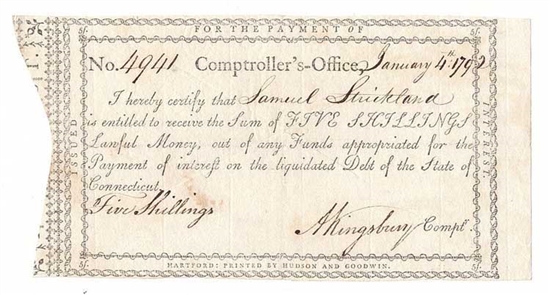 FOR THE PAYMENT OF
No. 4941 Comptroller's-Office, January 4th. 1792
I hereby certify that Samuel Strickland
is entitled to receive the Sum of FIVE SHILLINGS
Lawful Money, out of any Funds appropriated for the
Payment of interest on the liquidated Debt of the State of
Connecticut.
Five Shillings
AKingsbury Comptr.
HARTFORD: PRINTED BY HUDSON AND GOODWIN.
ISSUED
INTEREST.
5s.
5s.
5s.
5s.